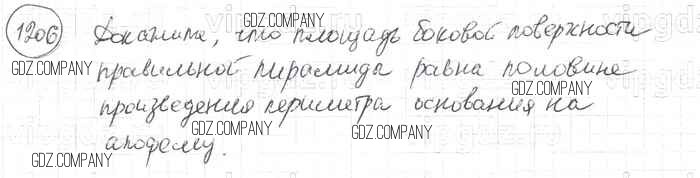 1206 Докажите, что площадь боковой поверхности
правильной пирамиды равна половине
произведения периметра основания на
апофему.
GDZ.COMPANY
GDZ.COMPANY
GDZ.COMPANY
GDZ.COMPANY
GDZ.COMPANY
GDZ.COMPANY
GDZ.COMPANY